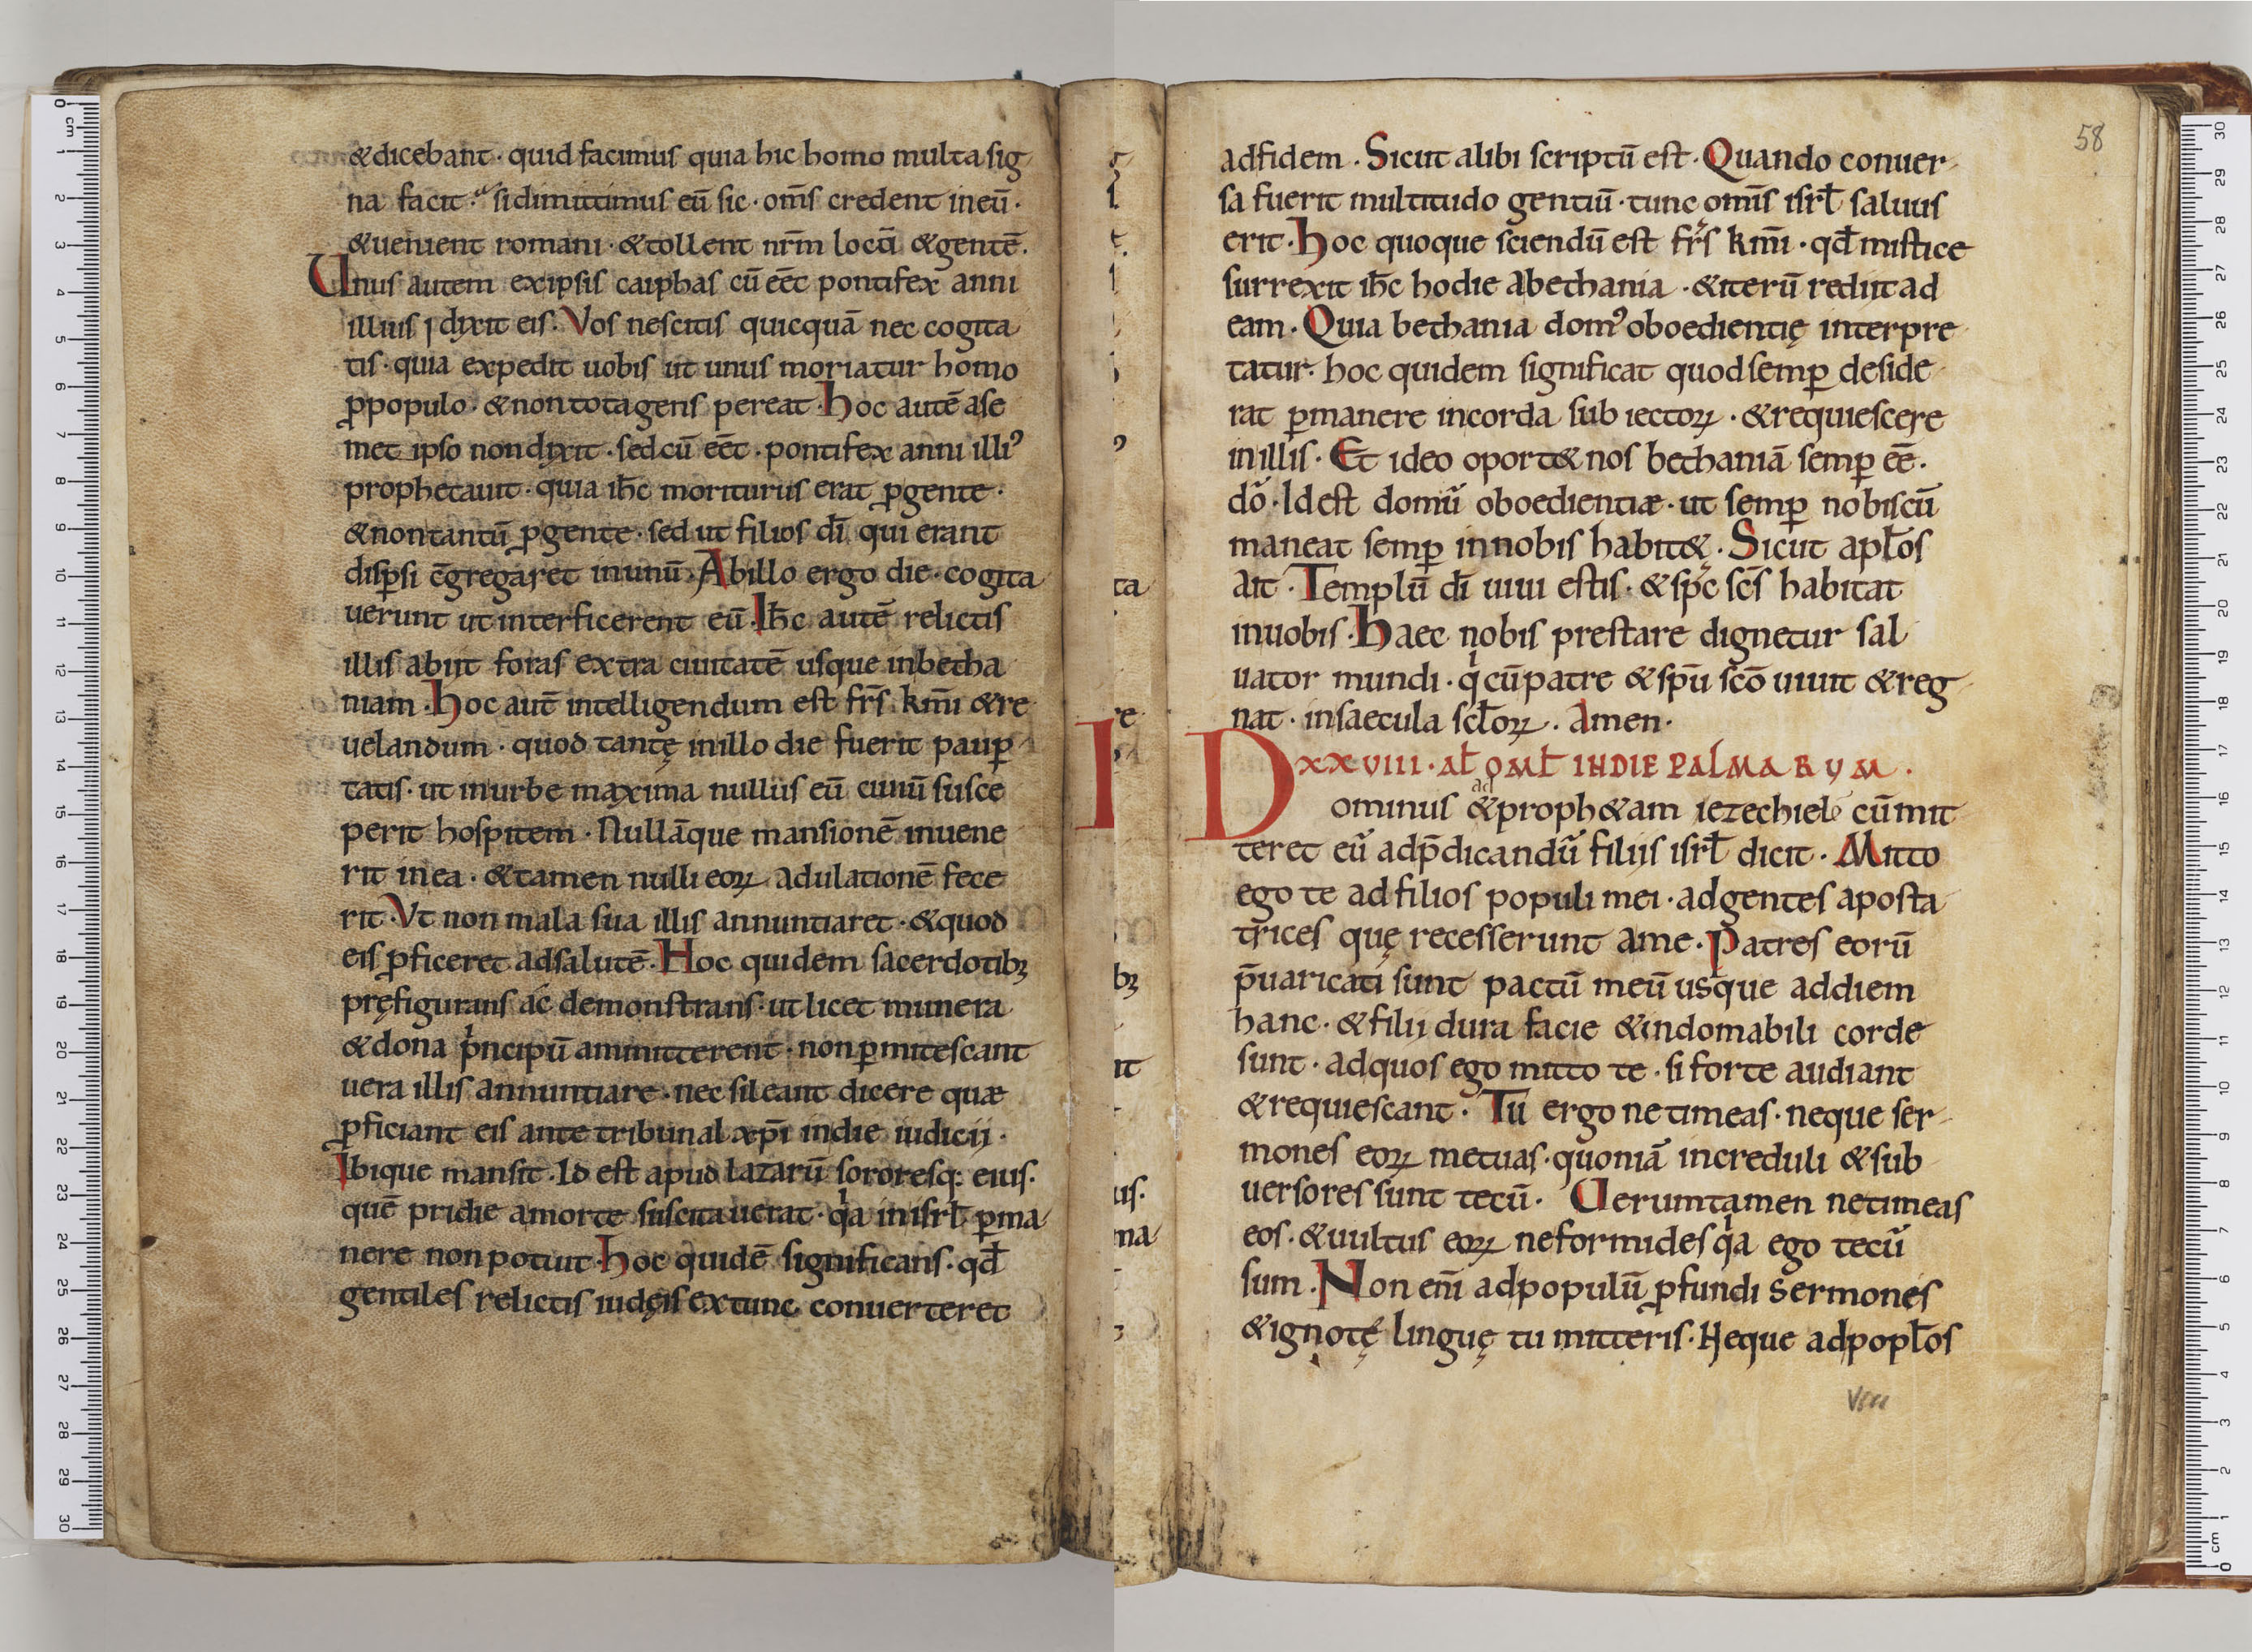 &dicebant· quid facimus quia hic homo multa sig
na facit· si dimittimus eū sic· om̄s credent ineū·
&uenient romani· &tollent nr̄m locū &gentē.
Unus autem exipsis caiphas cū eēt pontifex anni
illius dixit eis. Vos nescitis quicquā nec cogita
tis· quia expedit uobis ut unus moriatur homo
ꝓpopulo· &nontotagens pereat· hoc autē ase
met ipso nondixit· sedcū eēt· pontifex anni illiꝰ
prophetauit· quia ih̄c moriturus erat ꝓgente·
&nontantū ꝓgente· sed ut filios dī qui erant
disꝑsi c̄gregaret inunū· Abillo ergo die· cogita
uerunt ut interficerent eū. Ih̄c autē relictis
illis abiit foras extra ciuitatē usque inbetha
niam· hoc autē intelligendum est fr̄s km̄i &re
uelandum· quod tantę inillo die fuerit pauꝑ
tatis· ut inurbe maxima nullus eū ciuiū susce
perit hospitem· Nullāque mansionē inuene
rit inea· &tamen nulli eoꝝ adulationē fece
rit· Vt non mala sua illis annuntiaret· &quod
eis ꝓficeret adsalutē. Hoc quidem sacerdotibꝫ
pręfigurans ac demonstrans· ut licet munera
&dona pͥncipū ammitterent· non ꝑmitescant
uera illis annuntiare· nec sileant dicere quæ
ꝓficiant eis ante tribunal xp̄i indie iudicij·
Ibique mansit· Id est apud lazarū sororesq: eius·
quē pridie amorte suscitauerat· qͥa inisrł ꝑma
nere nonpotuit· hoc quidē significans· qđ
gentiles relictis iudęis extunc conuerteret
58
adfidem· Sicut alibi scriptū est· Quando conuer
sa fuerit multitudo gentiū· tunc omīs isrł saluus
erit· hoc quoque sciendū est fr̄s km̄i· qđ mistice
surrexit ih̄c hodie abethania· &iterū rediit ad
eam· Quia bethania domꝰ oboedientię interpre
tatur· hoc quidem significat quodsemꝑ deside
rat ꝑmanere incorda sub iectoꝝ· &requiescere
inillis· Et ideo oport& nos bethaniā semꝑ eē·
dō· Idest domū oboedientiæ· ut semꝑ nobiscū
maneat semꝑ innobis habit&· Sicut apłos
ait· Templū dī uiui estis· &sp̄c sc̄s habitat
inuobis· haec nobis prestare dignetur sal
uator mundi· qͥ cūpatre &sp̄u sc̄o uiuit &reg
nat· insaecula scłoꝝ· amen·
XXVIII· Ał OMł INDIE PALMARUM·
Dominus ad &proph&am iezechielē cūmit
teret eū adp̄dicandū filijs isrł dicit· Mitto
ego te adfilios populi mei· adgentes aposta
trices quę recesserunt ame· Patres eorū
p̄uaricati sunt pactū meū usque addiem
hanc· &filij dura facie &indomabili corde
sunt· adquos ego mitto te· si forte audiant
&requiescant· Tu ergo netimeas· neque ser
mones eoꝝ metuas· quoniā increduli &sub
uersores sunt tecū· Uerumtamen netimeas
eos· &uultus eoꝝ neformides qͥa ego tecū
sum· Non enī adpopulū ꝓfundi sermones
&ignotę linguę tu mitteris· Neque adpopłos
VIII